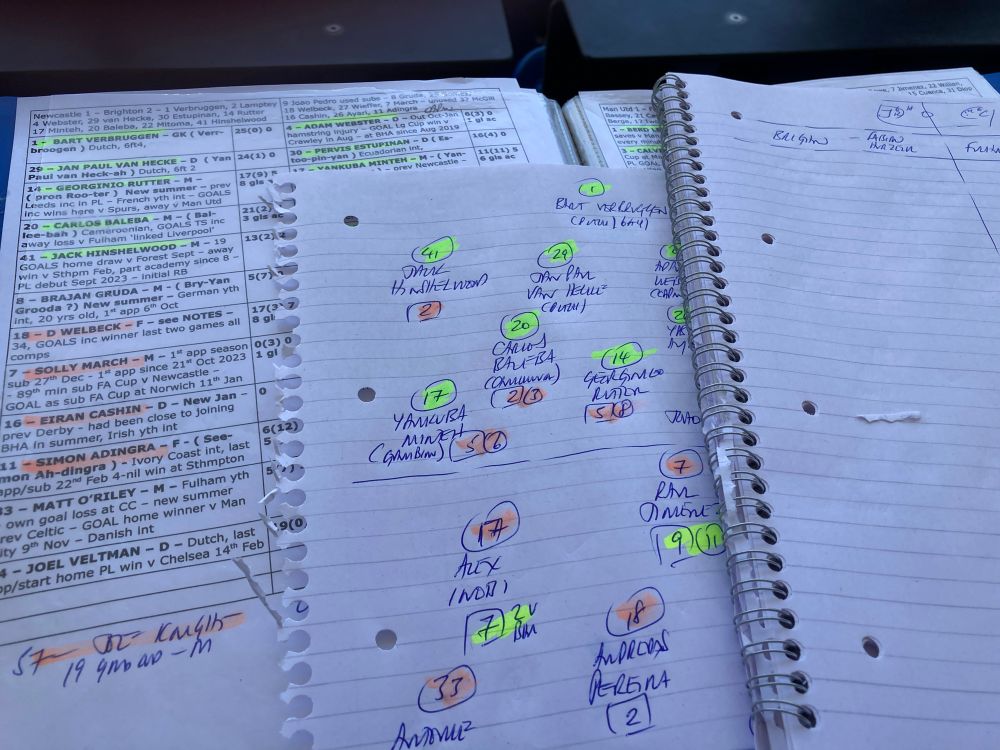 Newcastle 1 – Brighton 2 – 1 Verbruggen, 2 Lamptey
4 Webster, 29 van Hecke, 30 Estupinan, 14 Rutter
17 Minteh, 20 Baleba, 22 Mitoma, 41 Hinshelwood
9 Joao Pedro used subs – 8 Gruda,
18 Welbeck, 27 Wieffer, 7 March – unused 37 McGill
16 Cashin, 26 Ayari, 11 Adingra
1 – BART VERBRUGGEN – GK ( Verr-
broogen ) Dutch, 6ft4,
25(0) 0
29 – JAN PAUL VAN HECKE – D ( Yan
Paul van Heck-ah ) Dutch, 6ft 2
24(1) 0
14 – GEORGINIO RUTTER – M
( pron Roo-ter ) New summer – prev
Leeds inc in PL – French yth int – GOALS
inc wins here v Spurs, away v Man Utd
17(9) 5
8 gls
20 – CARLOS BALEBA – M – ( Bal-
lee-bah ) Cameroonian, GOALS TS inc
away loss v Fulham 'linked Liverpool'
21(2)
3 gls
41 – JACK HINSHELWOOD – M – 19
GOALS home draw v Forest Sept – away
win v Sthpm Feb, part academy since 8 –
PL debut Sept 2023 – initial RB
13(2) 2
8 – BRAJAN GRUDA – M – ( Bry-Yan
Grooda ?) New summer – German yth
int, 20 yrs old, 1st app 6th Oct
5(7)
18 – D WELBECK – F – see NOTES –
34, GOALS inc winner last two games all
comps
17(3) 7
8 gl
7 – SOLLY MARCH – M – 1st app season
sub 27th Dec - 1st app since 21st Oct 2023
- 89th min sub FA Cup v Newcastle –
GOAL as sub FA Cup at Norwich 11th Jan
0(3) 0
1 gl
16 – EIRAN CASHIN – D – New Jan –
prev Derby – had been close to joining
BHA in summer, Irish yth int
0
11 – SIMON ADINGRA – F – (See-
mon Ah-dingra ) - Ivory Coast int, last
app/sub 22nd Feb 4-nil win at Sthmpton
6(12)
5
33 – MATT O'RILEY – M – Fulham yth
own goal loss at CC – new summer
prev Celtic – GOAL home winner v Man
ity 9th Nov – Danish int
5
4 – JOEL VELTMAN – D – Dutch, last
pp/start home PL win v Chelsea 14th Feb
9(0)
57 – JOE KNIGHT
19 – M
4 – ADAM WEBSTER – D – Out Oct-Jan
hamstring injury – GOAL Lg Cup win v
Crawley in Aug – at BHA since Aug 2019
6(3) 0
1 gl
30 – PERVIS ESTUPINAN – D ( Es-
too-pin-yan ) Ecuadorian int,
16(4) 0
17 – YANKUBA MINTEH – M – ( Yan-
– prev Newcastle –
11(11) 5
6 gls ac
1
BART VERBRUGGEN
(DUTCH) 6ft4)
41
JACK
HINSHELWOOD
2
29
JAN PAUL
VAN HECKE
(DUTCH)
20
CARLOS
BALEBA
2 3
14
GEORGINIO
RUTTER
5 8
17
YANKUBA
MINTEH
(GAMBIAN)
5 6
JOAO
7
RAUL
JIMENEZ
9 11
17
ALEX
IWOBI
7 2 v
BHA
18
ANDREAS
PEREIRA
2
33
ANTONEE
Man Utd 1 –
Bassey, 21 Ca
Berge, 1
1 – BERD LE
3 – CALV
7 Jimenez, 22 Willian,
15 Cuenca, 31 Diop
BRIGHTON
FABIAN
HURZELER